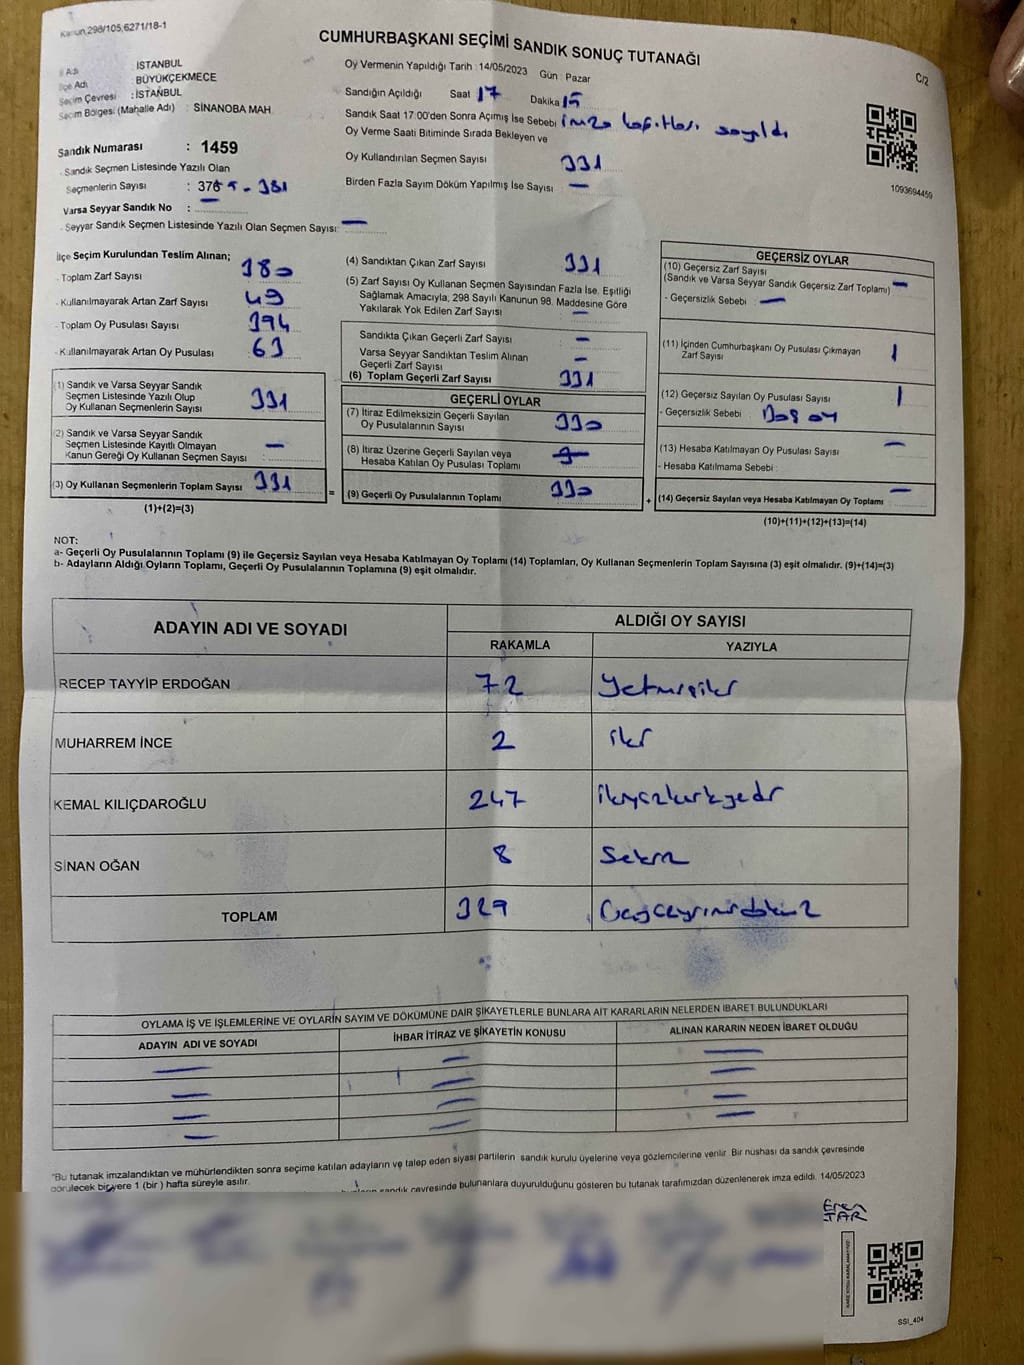 Kanun,298/105,6271/18-1
CUMHURBAŞKANI SEÇİMİ SANDIK SONUÇ TUTANAĞI
C/2
İl Adı : İSTANBUL
İlçe Adı : BÜYÜKÇEKMECE
Seçim Çevresi : İSTANBUL
Seçim Bölgesi (Mahalle Adı) : SİNANOBA MAH
Sandık Numarası : 1459
Sandık Seçmen Listesinde Yazılı Olan
Seçmenlerin Sayısı : 376 - 381
Varsa Seyyar Sandık No :
Seyyar Sandık Seçmen Listesinde Yazılı Olan Seçmen Sayısı: —
Oy Vermenin Yapıldığı Tarih : 14/05/2023 Gün : Pazar
Sandığın Açıldığı Saat 17 Dakika 15
Sandık Saat 17:00'den Sonra Açımış İse Sebebi imza kağıtları sayıldı
Oy Verme Saati Bitiminde Sırada Bekleyen ve
Oy Kullandırılan Seçmen Sayısı 331
Birden Fazla Sayım Döküm Yapılmış İse Sayısı —
1093694459
İlçe Seçim Kurulundan Teslim Alınan;
Toplam Zarf Sayısı 380
Kullanılmayarak Artan Zarf Sayısı 49
Toplam Oy Pusulası Sayısı 394
Kullanılmayarak Artan Oy Pusulası 63
(1) Sandık ve Varsa Seyyar Sandık
Seçmen Listesinde Yazılı Olup
Oy Kullanan Seçmenlerin Sayısı 331
(2) Sandık ve Varsa Seyyar Sandık
Seçmen Listesinde Kayıtlı Olmayan
Kanun Gereği Oy Kullanan Seçmen Sayısı —
(3) Oy Kullanan Seçmenlerin Toplam Sayısı 331 =
(1)+(2)=(3)
(4) Sandıktan Çıkan Zarf Sayısı 331
(5) Zarf Sayısı Oy Kullanan Seçmen Sayısından Fazla İse, Eşitliği
Sağlamak Amacıyla, 298 Sayılı Kanunun 98. Maddesine Göre
Yakılarak Yok Edilen Zarf Sayısı —
Sandıkta Çıkan Geçerli Zarf Sayısı —
Varsa Seyyar Sandıktan Teslim Alınan
Geçerli Zarf Sayısı —
(6) Toplam Geçerli Zarf Sayısı 331
GEÇERLİ OYLAR
(7) İtiraz Edilmeksizin Geçerli Sayılan
Oy Pusulalarının Sayısı 330
(8) İtiraz Üzerine Geçerli Sayılan veya
Hesaba Katılan Oy Pusulası Toplamı
(9) Geçerli Oy Pusulalarının Toplamı 330 +
GEÇERSİZ OYLAR
(10) Geçersiz Zarf Sayısı
(Sandık ve Varsa Seyyar Sandık Geçersiz Zarf Toplamı) —
- Geçersizlik Sebebi : —
(11) İçinden Cumhurbaşkanı Oy Pusulası Çıkmayan
Zarf Sayısı 1
(12) Geçersiz Sayılan Oy Pusulası Sayısı 1
- Geçersizlik Sebebi : Boş oy
(13) Hesaba Katılmayan Oy Pusulası Sayısı —
- Hesaba Katılmama Sebebi :
(14) Geçersiz Sayılan veya Hesaba Katılmayan Oy Toplamı —
(10)+(11)+(12)+(13)=(14)
NOT:
a- Geçerli Oy Pusulalarının Toplamı (9) ile Geçersiz Sayılan veya Hesaba Katılmayan Oy Toplamı (14) Toplamları, Oy Kullanan Seçmenlerin Toplam Sayısına (3) eşit olmalıdır. (9)+(14)=(3)
b- Adayların Aldığı Oyların Toplamı, Geçerli Oy Pusulalarının Toplamına (9) eşit olmalıdır.
ADAYIN ADI VE SOYADI ALDIĞI OY SAYISI
RAKAMLA YAZIYLA
RECEP TAYYİP ERDOĞAN 72 Yetmişiki
MUHARREM İNCE 2 iki
KEMAL KILIÇDAROĞLU 247 ikiyüzkırkyedi
SİNAN OĞAN 8 Sekiz
TOPLAM 329
OYLAMA İŞ VE İŞLEMLERİNE VE OYLARIN SAYIM VE DÖKÜMÜNE DAİR ŞİKAYETLERLE BUNLARA AİT KARARLARIN NELERDEN İBARET BULUNDUKLARI
ADAYIN ADI VE SOYADI İHBAR İTİRAZ VE ŞİKAYETİN KONUSU ALINAN KARARIN NEDEN İBARET OLDUĞU
— — —
— — —
— — —
— — —
"Bu tutanak imzalandıktan ve mühürlendikten sonra seçime katılan adayların ve talep eden siyasi partilerin sandık kurulu üyelerine veya gözlemcilerine verilir. Bir nüshası da sandık çevresinde
görülecek bir yere 1 (bir ) hafta süreyle asılır.
sandık çevresinde bulunanlara duyurulduğunu gösteren bu tutanak tarafımızdan düzenlenerek imza edildi. 14/05/2023
Eren
SSI_404